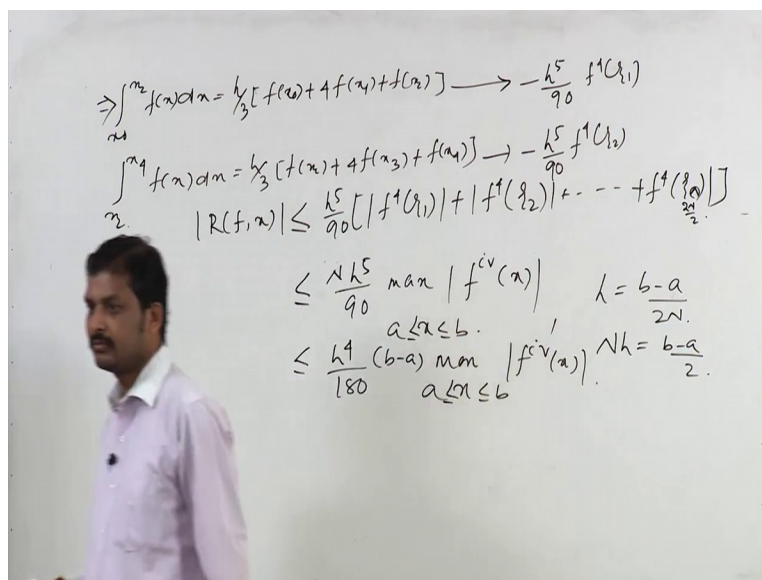 ⇒ ∫_{x0}^{x2} f(x)dx = h/3 [f(x0)+4f(x1)+f(x2)] → -h^5/90 f^4(ξ1)
∫_{x2}^{x4} f(x)dx = h/3 [f(x2)+4f(x3)+f(x4)] → -h^5/90 f^4(ξ2)
|R(f,x)| ≤ h^5/90 [|f^4(ξ1)|+|f^4(ξ2)|+ - - - - +f^4(ξ_{2N/2})|]
≤ Nh^5/90 max |f^{iv}(x)| h = b-a/2N.
a≤x≤b.
≤ h^4/180 (b-a) max |f^{iv}(x)|. Nh = b-a/2.
a≤x≤b